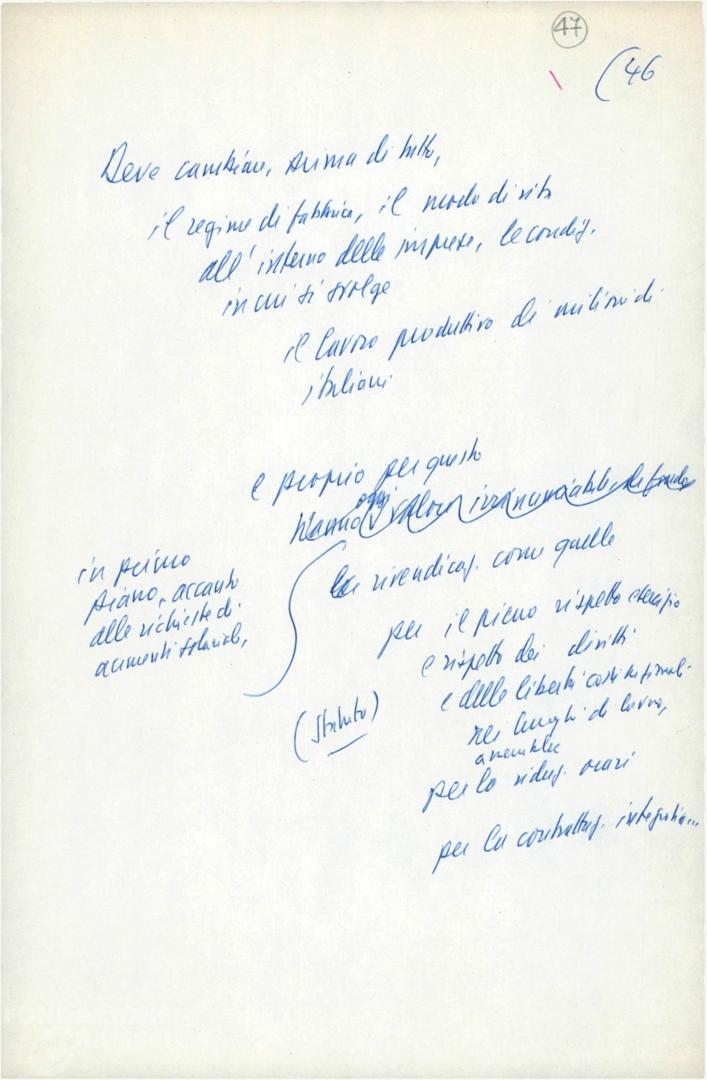 47
(46
Deve cambiare, prima di tutto,
il regime di fabbrica, il modo di vita
all'interno delle imprese, le condiz.
in cui si svolge
il lavoro produttivo di milioni di
italiani
e proprio per questo
oggi
Hanno valore irrinunciabile
in primo
piano, accanto
alle richieste di
aumenti salariali,
le rivendicaz. come quelle
per il pieno rispetto esercizio
e rispetto dei diritti
e delle libertà costituzionali
nei luoghi di lavoro,
assemblee
(Statuto)
per la riduz. orari
per la contrattaz. integrativa...